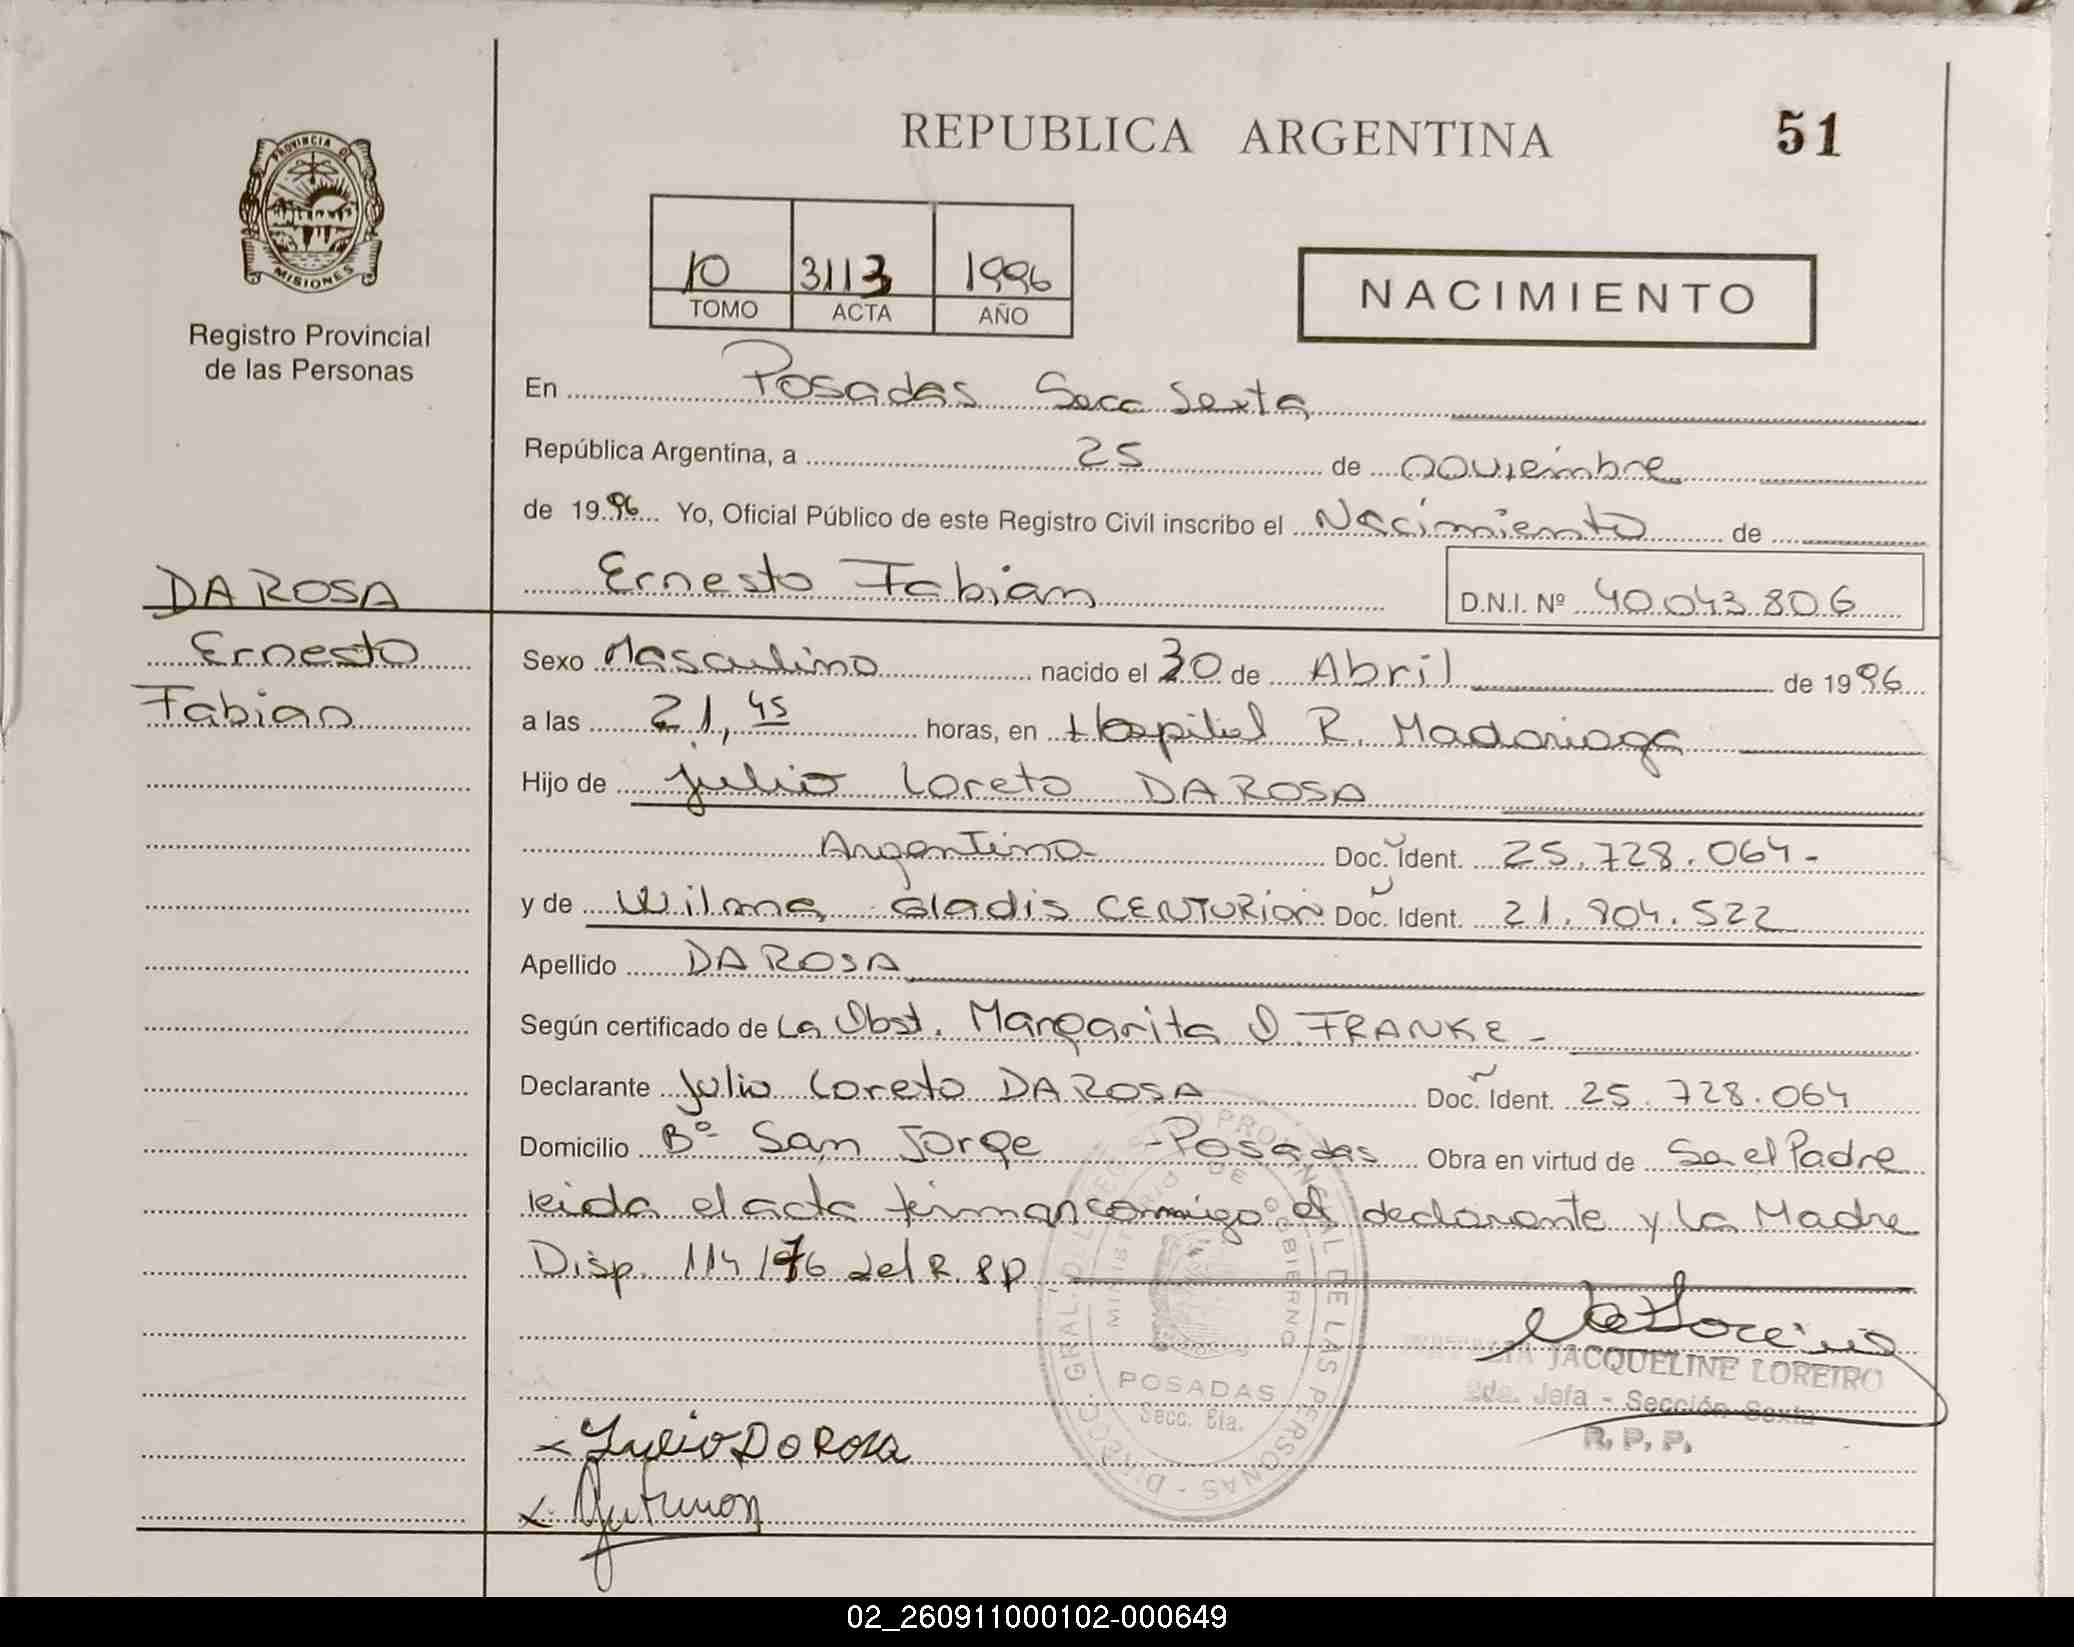 REPUBLICA ARGENTINA
51
PROVINCIA DE
MISIONES
Registro Provincial
de las Personas
10 3113 1996
TOMO ACTA AÑO
NACIMIENTO
En Posadas Secc Sexta
República Argentina, a 25 de noviembre
de 1996 Yo, Oficial Público de este Registro Civil inscribo el Nacimiento de
Ernesto Fabian D.N.I. Nº 40.043.806
DA ROSA
Ernesto
Fabian
Sexo Masculino nacido el 30 de Abril de 1996
a las 21,45 horas, en Hospital R. Madariaga
Hijo de Julio Loreto DA ROSA
Argentino Doc. Ident. 25.728.064-
y de Wilma Gladis CENTURION Doc. Ident. 21.904.522
Apellido DA ROSA
Según certificado de La Obst. Margarita O. FRANKE -
Declarante Julio Loreto DA ROSA Doc. Ident. 25.728.064
Domicilio Bº San Jorge - Posadas Obra en virtud de Sa el Padre
leida el acta firman conmigo el declarante y La Madre
Disp. 114/76 del R.P.P
DIRECC. GRAL. DEL REGISTRO PROVINCIAL DE LAS PERSONAS
MINISTERIO DE GOBIERNO
POSADAS
Secc. 6ta.
JACQUELINE LOREIRO
2da. Jefa - Sección Sexta
R. P. P.
Julio Da Rosa
02_260911000102-000649